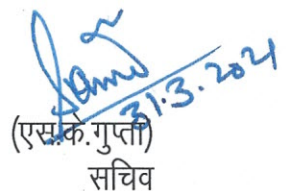 31.3.2021
(एस.के.गुप्ता)
सचिव